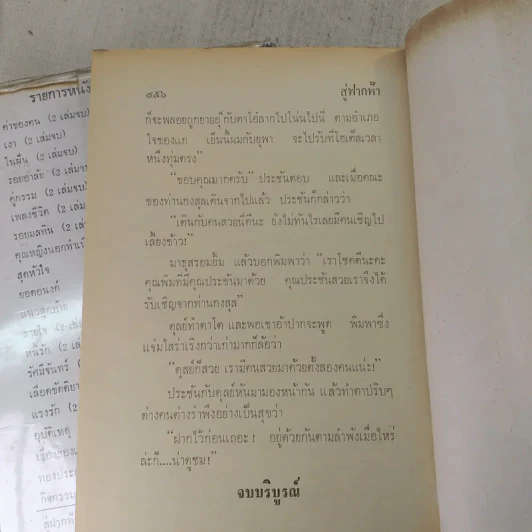 รายการหนัง
ค่าของคน (2 เล่มจบ)
เงา (2 เล่มจบ)
ในฝัน (2 เล่มจบ)
รอยอาลัย (2 เล่มจบ)
คู่กรรม (2 เล่มจบ)
เพลงชีวิต (2 เล่มจบ)
รอยมลทิน (2 เล่มจบ)
คุณหญิงนอกทำเ
สุดหัวใจ
ยอดอนงค์
แนวสุดท้าย
หนี้รัก (2 เล่มจ
รัศมีจันทร์ (2 เล่ม
เลือดขัตติยา
แรงรัก (2
อุบัติเหตุ
กิจกรรม
สู่ฝากฟ้
๔๕๖ สู่ฝากฟ้า
ก็จะพลอยถูกยายอุ๊กับตาโอ๋ลากไปโน่นไปนี่ ตามอำเภอ
ใจของแก เย็นนี้ผมกับยุพา จะไปรับที่โฮเต็ลเวลา
หนึ่งทุ่มตรง"
"ขอบคุณมากครับ" ประชันตอบ และเมื่อคณะ
ของท่านกงสุลเดินจากไปแล้ว ประชันก็กล่าวว่า
"เดินกับคนสวยนี่ดีนะ ยังไม่ทันไรเลยมีคนเชิญไป
เลี้ยงข้าว!"
มาฐสรอมยิ้ม แล้วบอกพิมพาว่า "เราโชคดีนะคะ
คุณพิมที่มีคุณประชันมาด้วย คุณประชันสวยเราจึงได้
รับเชิญจากท่านกงสุล"
ดุลย์ทำตาโต และพอเขาอ้าปากจะพูด พิมพาซึ่ง
แจ่มใสร่าเริงกว่าเก่ามากก็ล้อว่า
"ดุลย์ก็สวย เรามีคนสวยมาด้วยตั้งสองคนแน่ะ!"
ประชันกับดุลย์หันมามองหน้ากัน แล้วทำตาปริบๆ
ต่างคนต่างรำพึงอย่างเป็นสุขว่า
"ฝากไว้ก่อนเถอะ! อยู่ด้วยกันตามลำพังเมื่อไหร่
ล่ะก็....น่าดูชม!"
จบบริบูรณ์